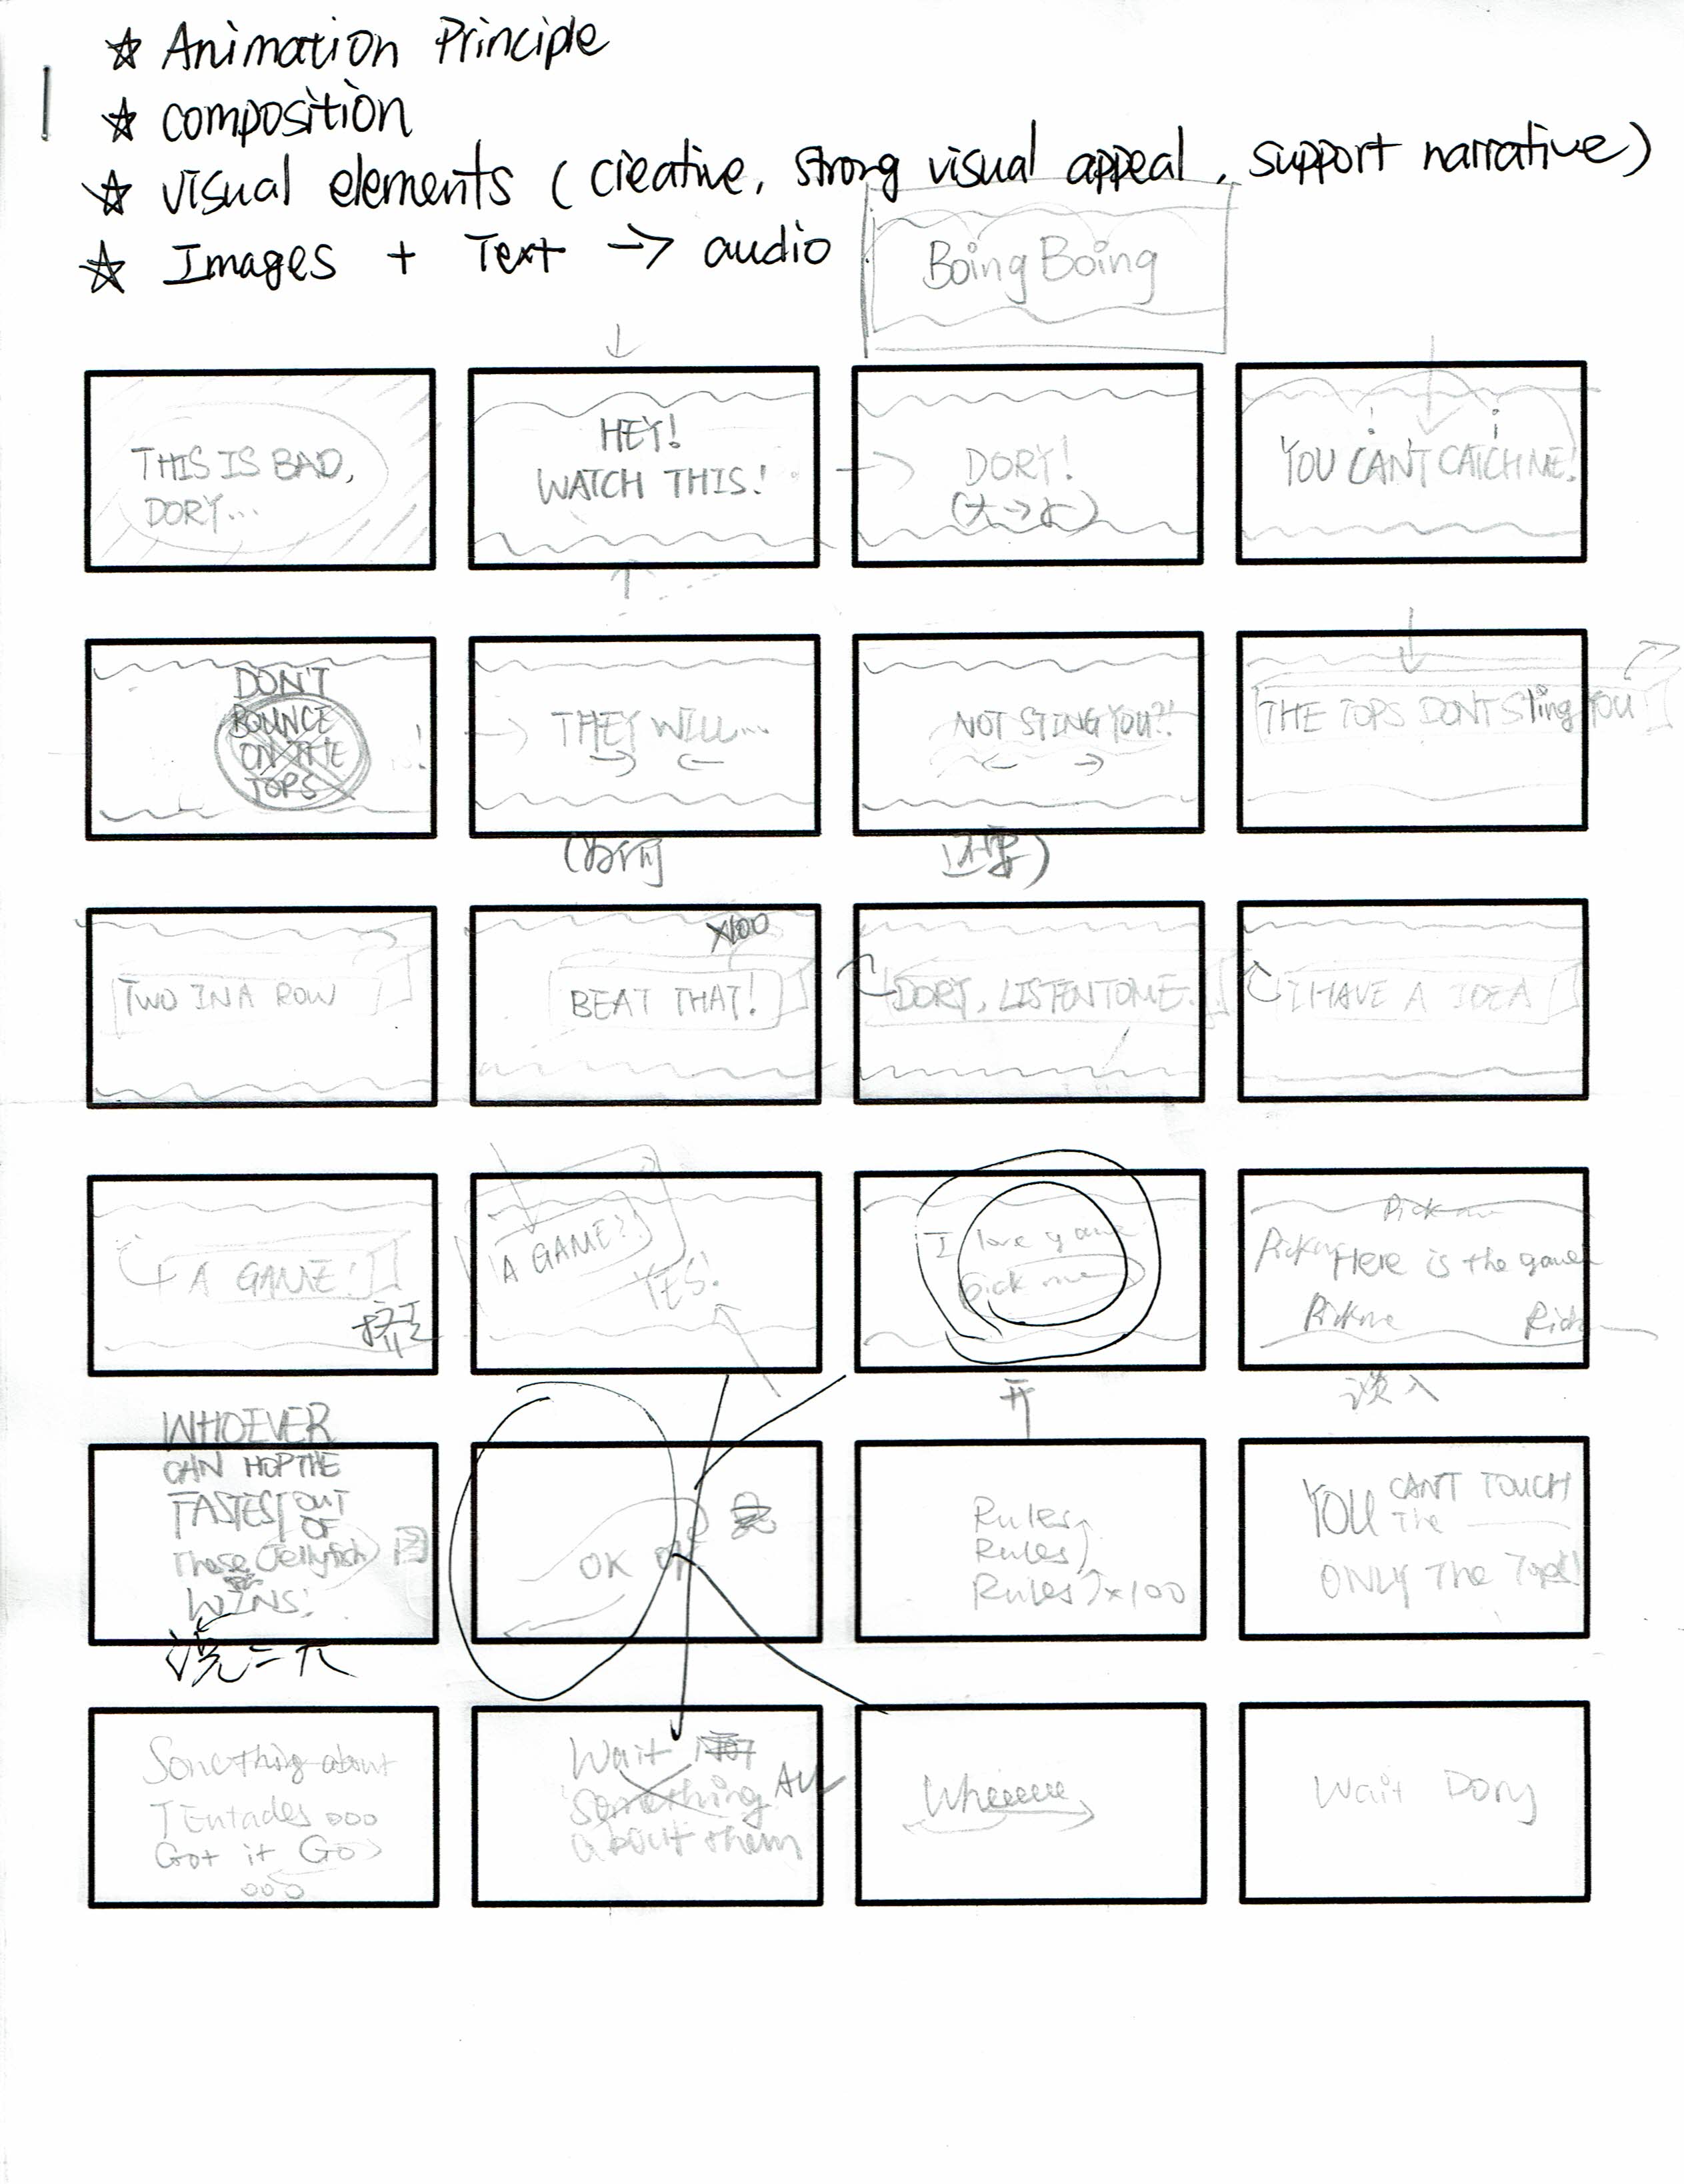 ☆ Animation Principle
☆ composition
☆ visual elements (creative, strong visual appeal, support narrative)
☆ Images + Text → audio
Boing Boing
THIS IS BAD,
DORY...
HEY!
WATCH THIS!
DORY!
(大→小)
YOU CAN'T CATCH ME!
DON'T
BOUNCE
ON THE
TOPS
THEY WILL...
NOT STING YOU?!
THE TOPS DONT Sting YOU!
TWO IN A ROW
x100
BEAT THAT!
DORY, LISTEN TO ME.
I HAVE A IDEA!
A GAME!
A GAME?!
YES!
I love game
pick me
Pick me
Pick Here is the game
Pickme
Pick
开
淡入
WHOEVER
CAN HOP THE
FASTEST OUT
OF
These Jellyfish
WINS!
OK OK
Rules
Rules
Rules x100
YOU CANT TOUCH
The
ONLY The Tops!
Something about
TEntacles ooo
Got it Go
ooo
Wait
Something
about them
Wheeeee
Wait Dory